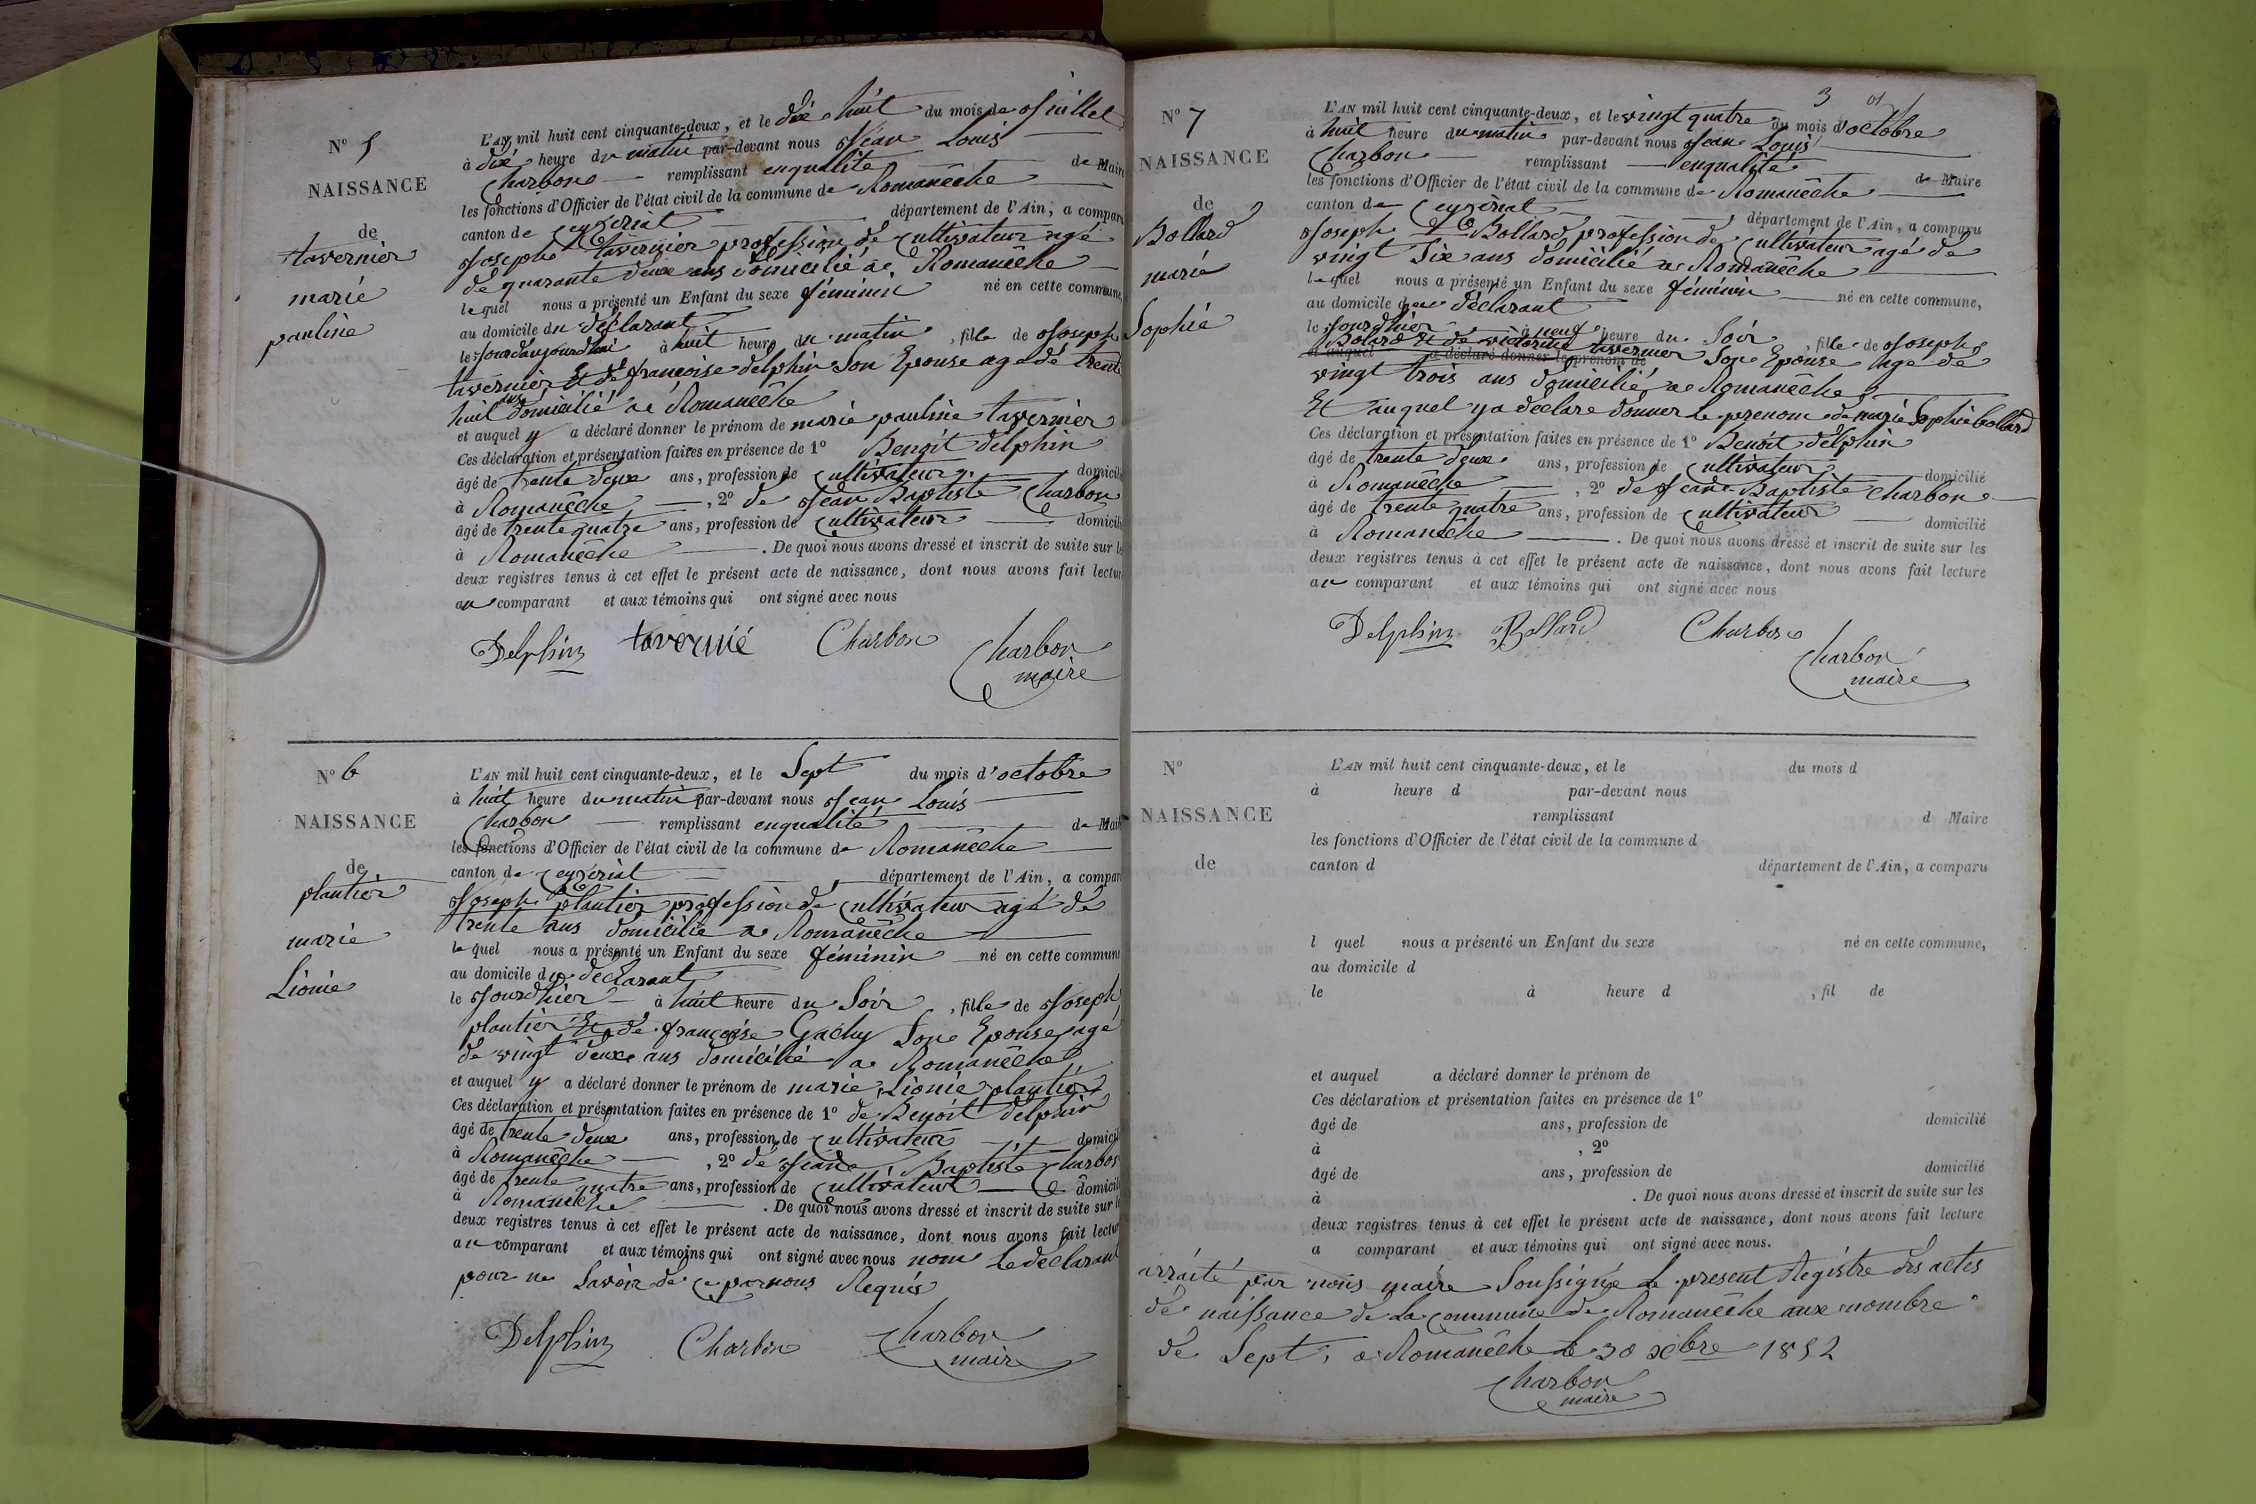 N° 5
NAISSANCE
de
tavernier
marie
pauline
L'AN mil huit cent cinquante-deux, et le dix huit du mois de Juillet
à dix heure du matin par-devant nous Jean Louis
Charbon remplissant enqualité de Maire
les fonctions d'Officier de l'état civil de la commune de Romanêche
canton de Ceyzeriat département de l'Ain, a comparu
Joseph tavernier profession de Cultivateur agé
de quarante deux ans domicilié a Romanêche
lequel nous a présenté un Enfant du sexe féminin né en cette commune,
au domicile du déclarant
le Jourdaujourdhui à huit heure du matin, fille de Joseph
tavernier Et de françoise delphin son Epouse agé de trente
huit ans domicilié a Romanêche
et auquel y a déclaré donner le prénom de marie pauline tavernier
Ces déclaration et présentation faites en présence de 1° Benoit delphin
âgé de trente deux ans, profession de Cultivateur domicilié
à Romanêche, 2° de Jean Baptiste Charbon
âgé de trente quatre ans, profession de Cultivateur domicilié
à Romanêche. De quoi nous avons dressé et inscrit de suite sur les
deux registres tenus à cet effet le présent acte de naissance, dont nous avons fait lecture
au comparant et aux témoins qui ont signé avec nous
Delphin tavernié Charbon Charbon
maire
N° 6
NAISSANCE
de
plantier
marie
Lionie
L'AN mil huit cent cinquante-deux, et le Sept du mois d'octobre
à huit heure du matin par-devant nous Jean Louis
Charbon remplissant enqualité de Maire
les fonctions d'Officier de l'état civil de la commune de Romanêche
canton de Ceyzériat, département de l'Ain, a comparu
Joseph plantier profession de Cultivateur agé de
trente ans domicilié a Romanêche
le quel nous a présenté un Enfant du sexe féminin né en cette commune
au domicile du déclarant
le Jourdhier à huit heure du Soir, fille de Joseph
plantier Et de françoise Gachy Son Epouse agé
de vingt deux ans domicilié a Romanêche
et auquel y a déclaré donner le prénom de marie Lionie plantier
Ces déclaration et présentation faites en présence de 1° de Benoit delphin
âgé de trente deux ans, profession de Cultivateur domicilié
à Romanêche, 2° de Jean Baptiste Charbon
âgé de trente quatre ans, profession de Cultivateur domicilié
à Romanêche. De quoi nous avons dressé et inscrit de suite sur les
deux registres tenus à cet effet le présent acte de naissance, dont nous avons fait lecture
au comparant et aux témoins qui ont signé avec nous nom le déclarant
pour ne Savoir de ce par nous Requis
Delphin Charbon Charbon
maire
3
N° 7
NAISSANCE
de
Bollard
marie
Sophie
L'AN mil huit cent cinquante-deux, et le vingt quatre du mois d'octobre
à huit heure du matin par-devant nous Jean Louis
Charbon remplissant enqualité de Maire
les fonctions d'Officier de l'état civil de la commune de Romanêche
canton de Ceyzériat, département de l'Ain, a comparu
Joseph Bollard profession de Cultivateur agé de
vingt Six ans domicilié a Romanêche
lequel nous a présenté un Enfant du sexe féminin né en cette commune,
au domicile du déclarant
le Jourdhier à neuf heure du Soir, fille de Joseph
Bolard Et de victorine tavernier Son Epouse agé de
et auquel a déclaré donner le prénom de
vingt trois ans domicilié a Romanêche
Et auquel y a déclaré donner le prenom de marie Sophie bollard
Ces déclaration et présentation faites en présence de 1° Benoit delphin
âgé de trente deux ans, profession de Cultivateur domicilié
à Romanêche, 2° de Jean Baptiste Charbon
âgé de trente quatre ans, profession de Cultivateur domicilié
à Romanêche. De quoi nous avons dressé et inscrit de suite sur les
deux registres tenus à cet effet le présent acte de naissance, dont nous avons fait lecture
au comparant et aux témoins qui ont signé avec nous
Delphin Bollard Charbon
Charbon
maire
N°
NAISSANCE
de
L'AN mil huit cent cinquante-deux, et le du mois d
à heure d par-devant nous
remplissant d Maire
les fonctions d'Officier de l'état civil de la commune d
canton d département de l'Ain, a comparu
l quel nous a présenté un Enfant du sexe né en cette commune,
au domicile d
le à heure d , fil de
et auquel a déclaré donner le prénom de
Ces déclaration et présentation faites en présence de 1°
âgé de ans, profession de domicilié
à , 2°
âgé de ans, profession de domicilié
à . De quoi nous avons dressé et inscrit de suite sur les
deux registres tenus à cet effet le présent acte de naissance, dont nous avons fait lecture
a comparant et aux témoins qui ont signé avec nous.
arraité par nous maire Soussigné le present Registre des actes
de naissance de la Commune de Romanêche aux nombre
de Sept, a Romanêche le 30 xbre 1852
Charbon
maire